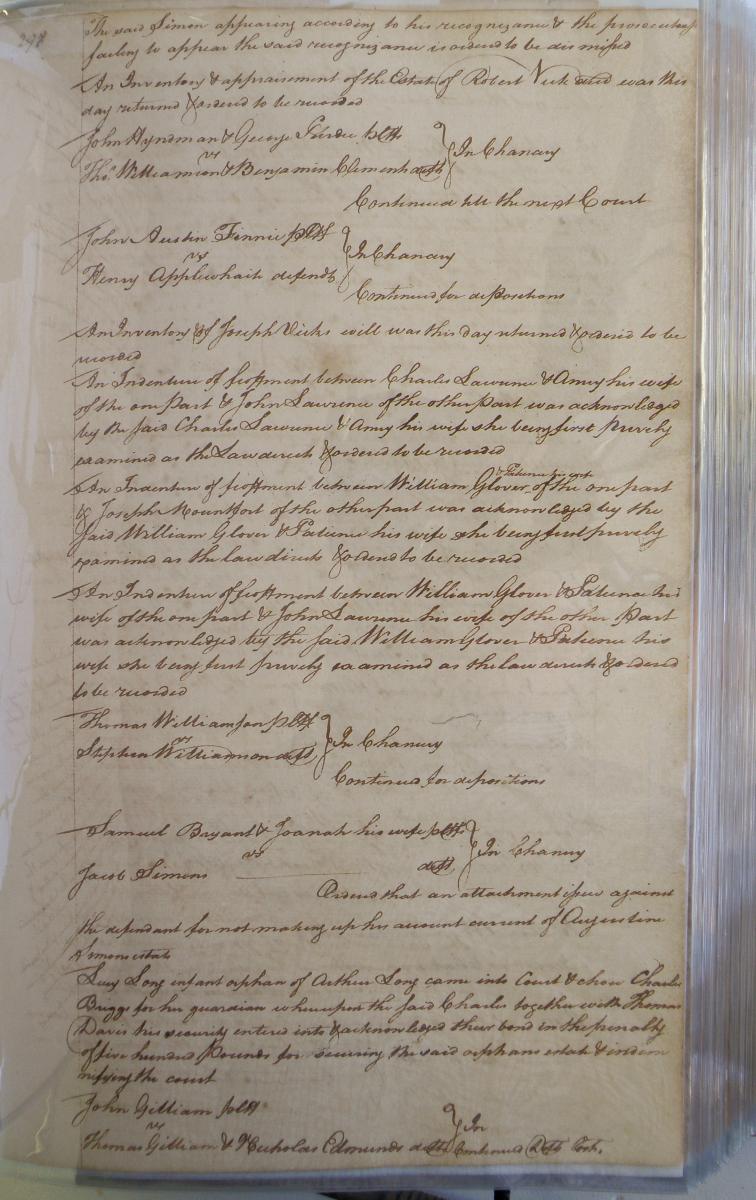 The said Simon appearing according to his recognizance & the prosecutor
failing to appear the said recognizance is ordered to be dismissed
An Inventory & appraisement of the Estate of Robert Vick decd was this
day returned & ordered to be recorded
John Hyndman & George Purdie pltfs
vs
Thos Williamson & Benjamin Clements defts
In Chancery
Continued till the next Court
John Austin Finnie pltf
vs
Henry Applewhaite defendt
In Chancery
Continued for depositions
An Inventory of Joseph Vicks will was this day returned & ordered to be
recorded
An Indenture of feoffment between Charles Lawrence & Amey his wife
of the one Part & John Lawrence of the other part was acknowledged
by the said Charles Lawrence & Amey his wife she being first privily
examined as the Law directs & ordered to be recorded
An Indenture of feoffment between William Glover & Patience his wife of the one part
& Joseph Mountfort of the other part was acknowledged by the
said William Glover & Patience his wife she being first privily
examined as the law directs & ordered to be recorded
An Indenture of feoffment between William Glover & Patience his
wife of the one part & John Lawrence his wife of the other Part
was acknowledged by the said William Glover & Patience his
wife she being first privily examined as the law directs & ordered
to be recorded
Thomas Williamson pltf
vs
Stephen Williamson deft
In Chancery
Continued for depositions
Samuel Bryant & Joanah his wife pltfs
vs
Jacob Simons deft
In Chancery
Ordered that an attachment issue against
the defendant for not making up his account current of Augustine
Simons estate
Lucy Long infant orphan of Arthur Long came into Court & chose Charles
Briggs for her guardian whereupon the said Charles together with Thomas
Davis his security entered into & acknowledged their bond in the penalty
of five hundred Pounds for securing the said orphans estate & indem
nifying the court
John Gilliam pltf
vs
Thomas Gilliam & Nicholas Edmunds defts
In
Continued Defts Cost.